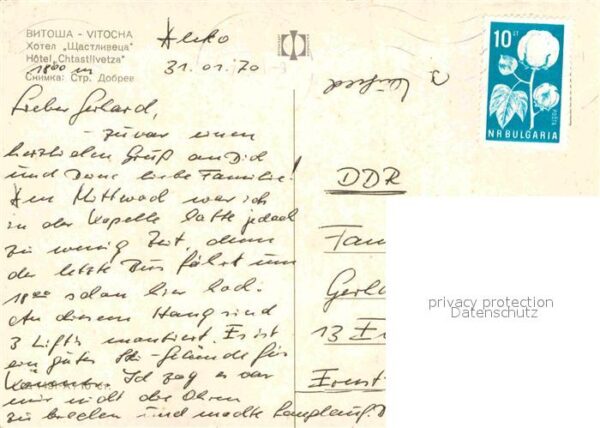 ВИТОША - VITOCHA
Хотел „Щастливеца"
Hôtel „Chtastlivetza"
1800 m
Снимка: Стр. Добрев
Aleko
31.01.70
10 ст
поща
NR BULGARIA
Lieber Gerhard,
- zuvor einen
herzlichen Gruß an Dich
und Deine liebe Familie!
Am Mittwoch war ich
in der Kapelle hatte jedoch
zu wenig Zeit, denn
der letzte Bus fährt um
18⁰⁰ schon hier hoch.
An diesem Hang sind
3 Lifts montiert. Es ist
ein gutes Ski-Gelände für
Ich zog es vor
mir nicht die Ohren
zu brechen und machte Langlauf. D
DDR
Fam
Gerha
13 E
Ernst-
privacy protection
Datenschutz